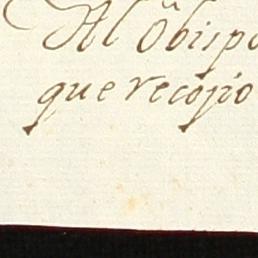 Al Obispo
que recopio